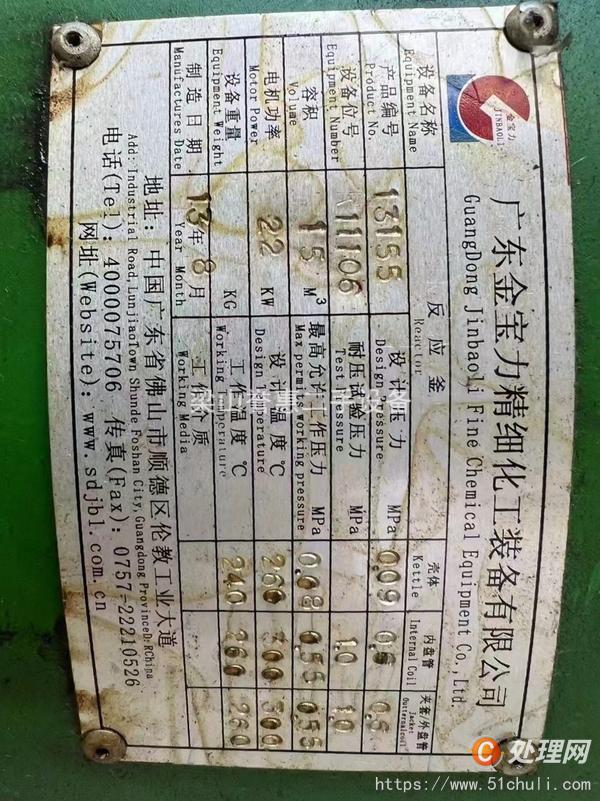 金宝力
JINBAOLI
广东金宝力精细化工装备有限公司
GuangDong Jinbaoli Fine Chemical Equipment Co.,Ltd.
设备名称 反应釜
Equipment Name Reactor
产品编号 13155 设计压力 MPa 壳体 0.09 内盘管 夹套/外盘管
Product No. Design Pressure Kettle Internal Coil Jacket
设备位号 11106 耐压试验压力 MPa 1.0 1.0
Equipment Number Test Pressure
容积 15 M³ 最高允许工作压力 MPa 0.55 0.55
Volume Max permits working pressure
电机功率 22 KW 设计温度 ℃ 260 300 300
Motor Power Design Temperature
设备重量 KG 工作温度 ℃ 240 260 260
Equipment Weight Working Temperature
制造日期 13年8月 工作介质
Manufactures Date Year Month Working Media
地址：中国广东省佛山市顺德区伦教工业大道
Add: Industrial Road,LunjiaoTown Shunde Foshan City,Guangdong Province
电话(Tel): 4000075706 传真(Fax): 0757-22210526
网址(Website): www.sdjbl.com.cn
C处理网
https://www.51chuli.com/